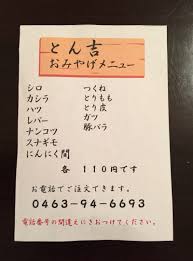 とん吉
おみやげメニュー
シロ
カシラ
ハツ
レバー
ナンコツ
スナギモ
にんにく間
つくね
とりもも
とり皮
ガツ
豚バラ
各 110円です
お電話でご注文できます。
0463-94-6693
電話番号の間違えにきおつけてください。